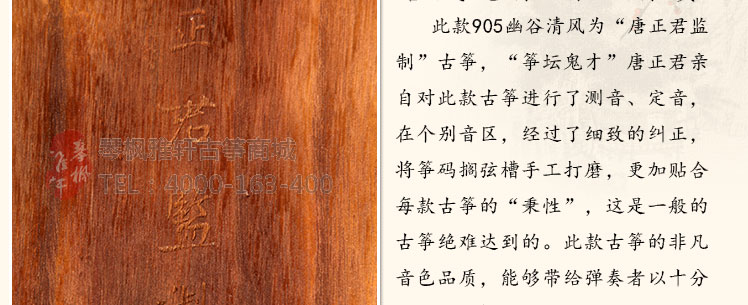 正
君
監
琴枫雅轩古筝商城
TEL：4000-163-400
此款905幽谷清风为“唐正君监
制”古筝，“筝坛鬼才”唐正君亲
自对此款古筝进行了测音、定音，
在个别音区，经过了细致的纠正，
将筝码搁弦槽手工打磨，更加贴合
每款古筝的“秉性”，这是一般的
古筝绝难达到的。此款古筝的非凡
音色品质，能够带给弹奏者以十分